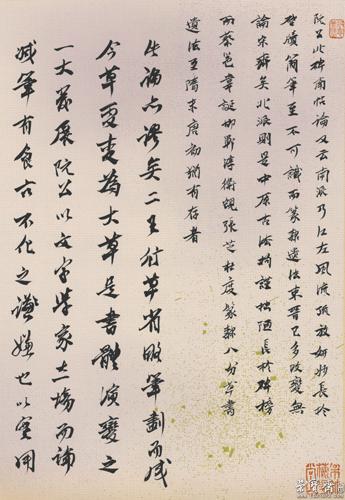 阮公北碑南帖論又云南派乃江左風流疏放妍妙長於
啓牘簡筆至不可識而篆隸遺法東晉已多改變無
論宋齊矣北派則是中原古法拘謹拙陋長於碑榜
而蔡邕韋誕邯鄲淳衛覬張芝杜度篆隸八分草書
遺法至隋末唐初猶有存者
此論亦謬矣二王行草省略筆劃而成
今草更變為大草是書體演變之
一大發展阮公以文字學家立場而論
減筆有食古不化之譏嫌也以實用